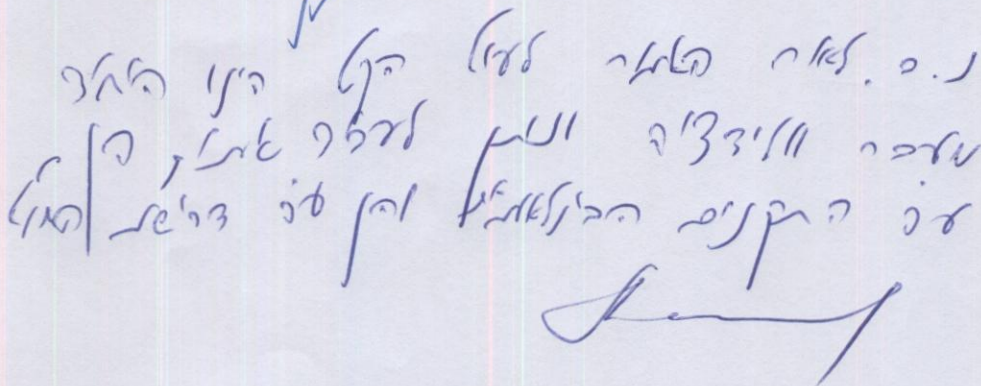 נ.ב. לאור האמור לעיל הקט הינו היחיד
שעבר וולידציה וניתן לעבוד הן
ע"פ התקנים הבינלאומיים והן ע"פ דרישת